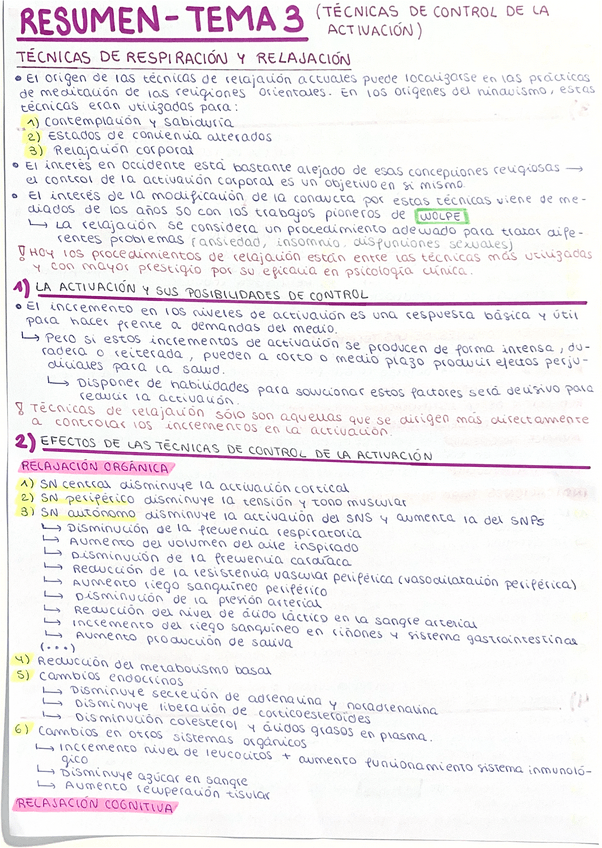 RESUMEN - TEMA 3 (TÉCNICAS DE CONTROL DE LA
ACTIVACIÓN)
TÉCNICAS DE RESPIRACIÓN Y RELAJACIÓN
• El origen de las técnicas de relajación actuales puede localizarse en las prácticas
de meditación de las religiones orientales. En los orígenes del hinauismo, estas
técnicas eran utilizadas para:
1) Contemplación y sabiduría
2) Estados de conciencia alterados
3) Relajación corporal
• El interés en occidente está bastante alejado de esas concepciones religiosas →
el control de la activación corporal es un objetivo en sí mismo.
• El interés de la modificación de la conducta por estas técnicas viene de me-
diados de los años 50 con los trabajos pioneros de WOLPE
↳ La relajación se considera un procedimiento adecuado para tratar dife-
rentes problemas (ansiedad, insomnio, disfunciones sexuales)
! Hoy los procedimientos de relajación están entre las técnicas más utilizadas
y con mayor prestigio por su eficacia en psicología clínica.
1) LA ACTIVACIÓN Y SUS POSIBILIDADES DE CONTROL
• El incremento en los niveles de activación es una respuesta básica y útil
para hacer frente a demandas del medio.
↳ Pero si estos incrementos de activación se producen de forma intensa, du-
radera o reiterada, pueden a corto o medio plazo producir efectos perju-
diciales para la salud.
↳ Disponer de habilidades para solucionar estos factores será decisivo para
reducir la activación.
! Técnicas de relajación sólo son aquellas que se dirigen más directamente
a controlar los incrementos en la activación.
2) EFECTOS DE LAS TÉCNICAS DE CONTROL DE LA ACTIVACIÓN
RELAJACIÓN ORGÁNICA
1) SN central disminuye la activación cortical
2) SN periférico disminuye la tensión y tono muscular
3) SN autónomo disminuye la activación del SNS y aumenta la del SNPs
↳ Disminución de la frecuencia respiratoria
↳ Aumento del volumen del aire inspirado
↳ Disminución de la frecuencia cardíaca
↳ Reducción de la resistencia vascular periférica (vasodilatación periférica)
↳ Aumento riego sanguíneo periférico
↳ Disminución de la presión arterial
↳ Reducción del nivel de ácido láctico en la sangre arterial
↳ Incremento del riego sanguíneo en riñones y sistema gastrointestinal
↳ Aumento producción de saliva
(...)
4) Reducción del metabolismo basal
5) Cambios endocrinos
↳ Disminuye secreción de adrenalina y noradrenalina
↳ Disminuye liberación de corticoesteroides
↳ Disminución colesterol y ácidos grasos en plasma.
6) Cambios en otros sistemas orgánicos
↳ Incremento nivel de leucocitos + aumento funcionamiento sistema inmunoló-
gico
↳ Disminuye azúcar en sangre
↳ Aumento recuperación tisular
RELAJACIÓN COGNITIVA